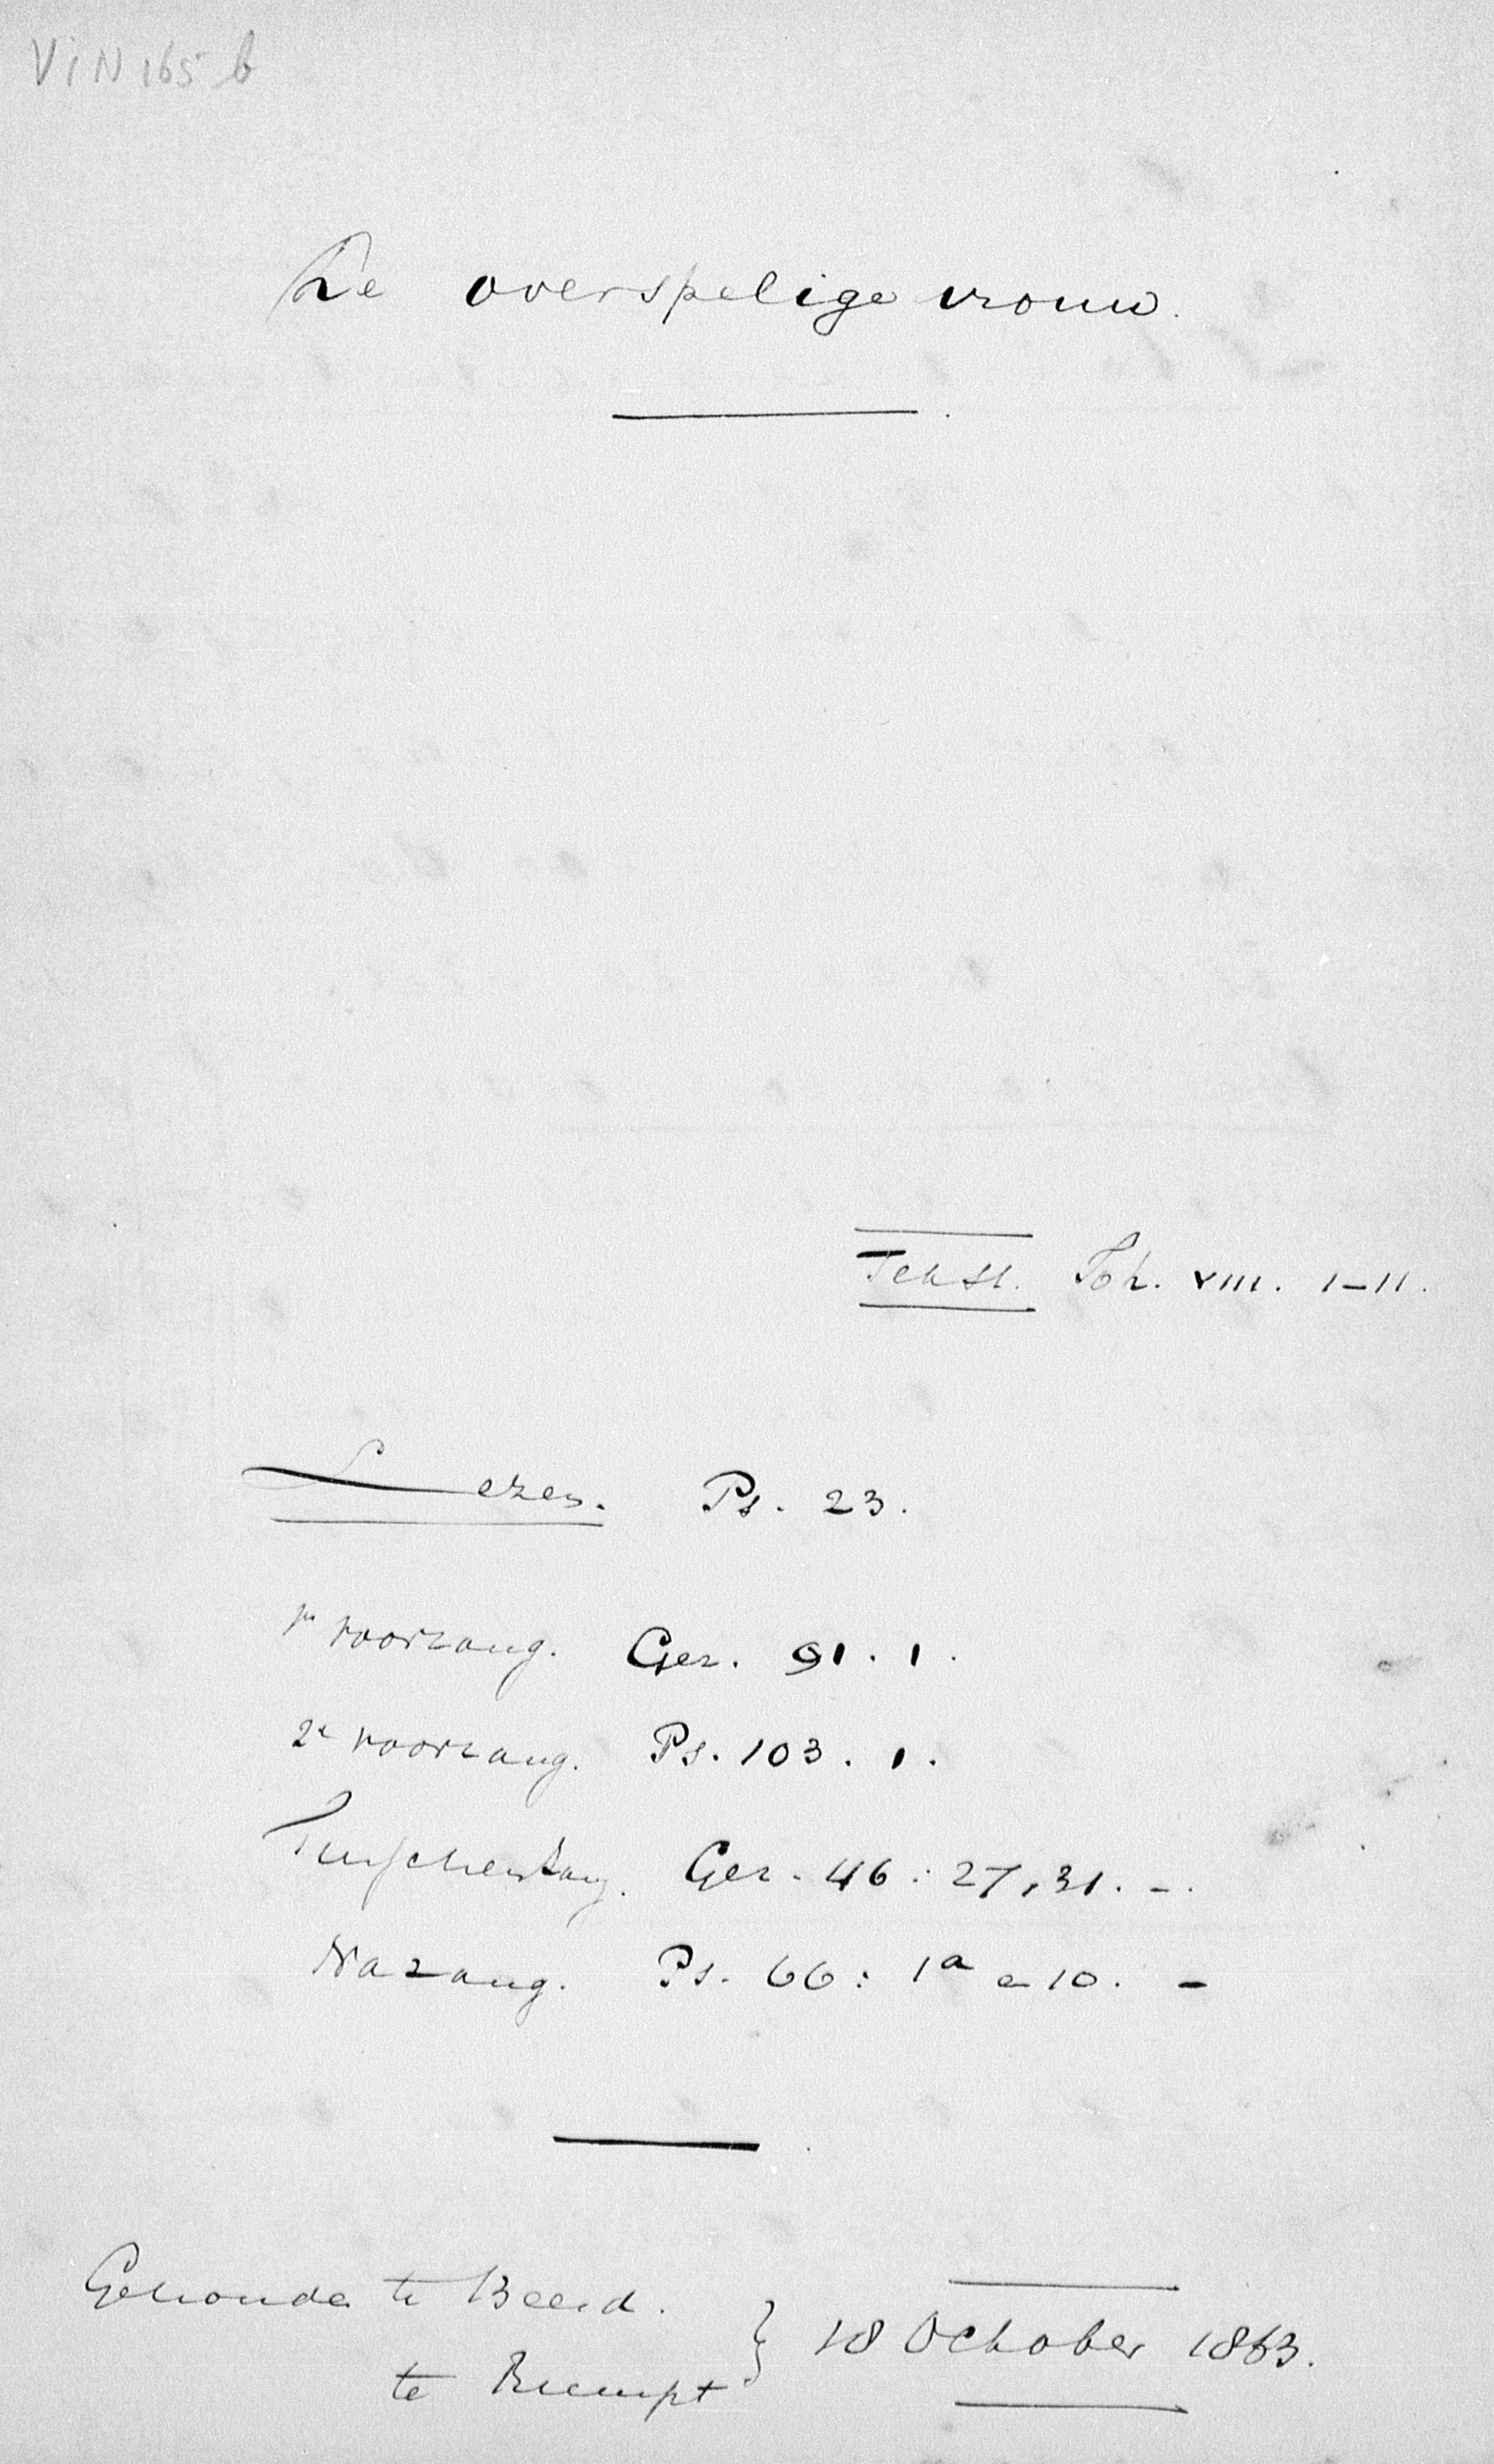 ViN 165 b
De overspelige vrouw.
Tekst. Joh. VIII. 1–11.
Lezen. Ps. 23.
1e voorzang. Gez. 91. 1.
2e voorzang. Ps. 103. 1.
Tusschenzang. Gez. 46: 27, 31. –.
Nazang. Ps. 66: 1a en 10. –
Gehouden te Beesd.
te Rumpt } 18 October 1863.